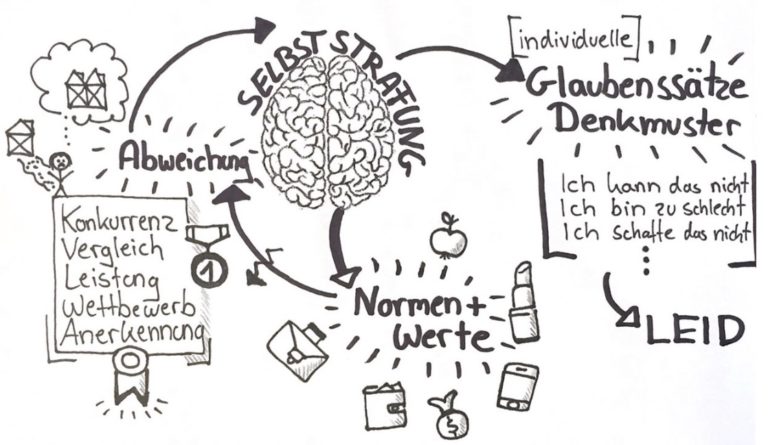 [individuelle]
SELBSTSTRAFUNG
Glaubenssätze
Denkmuster
Abweichung
Ich kann das nicht
Ich bin zu schlecht
Ich schaffe das nicht
⋮
Konkurrenz
Vergleich
Leistung
Wettbewerb
Anerkennung
1
Normen +
Werte
LEID